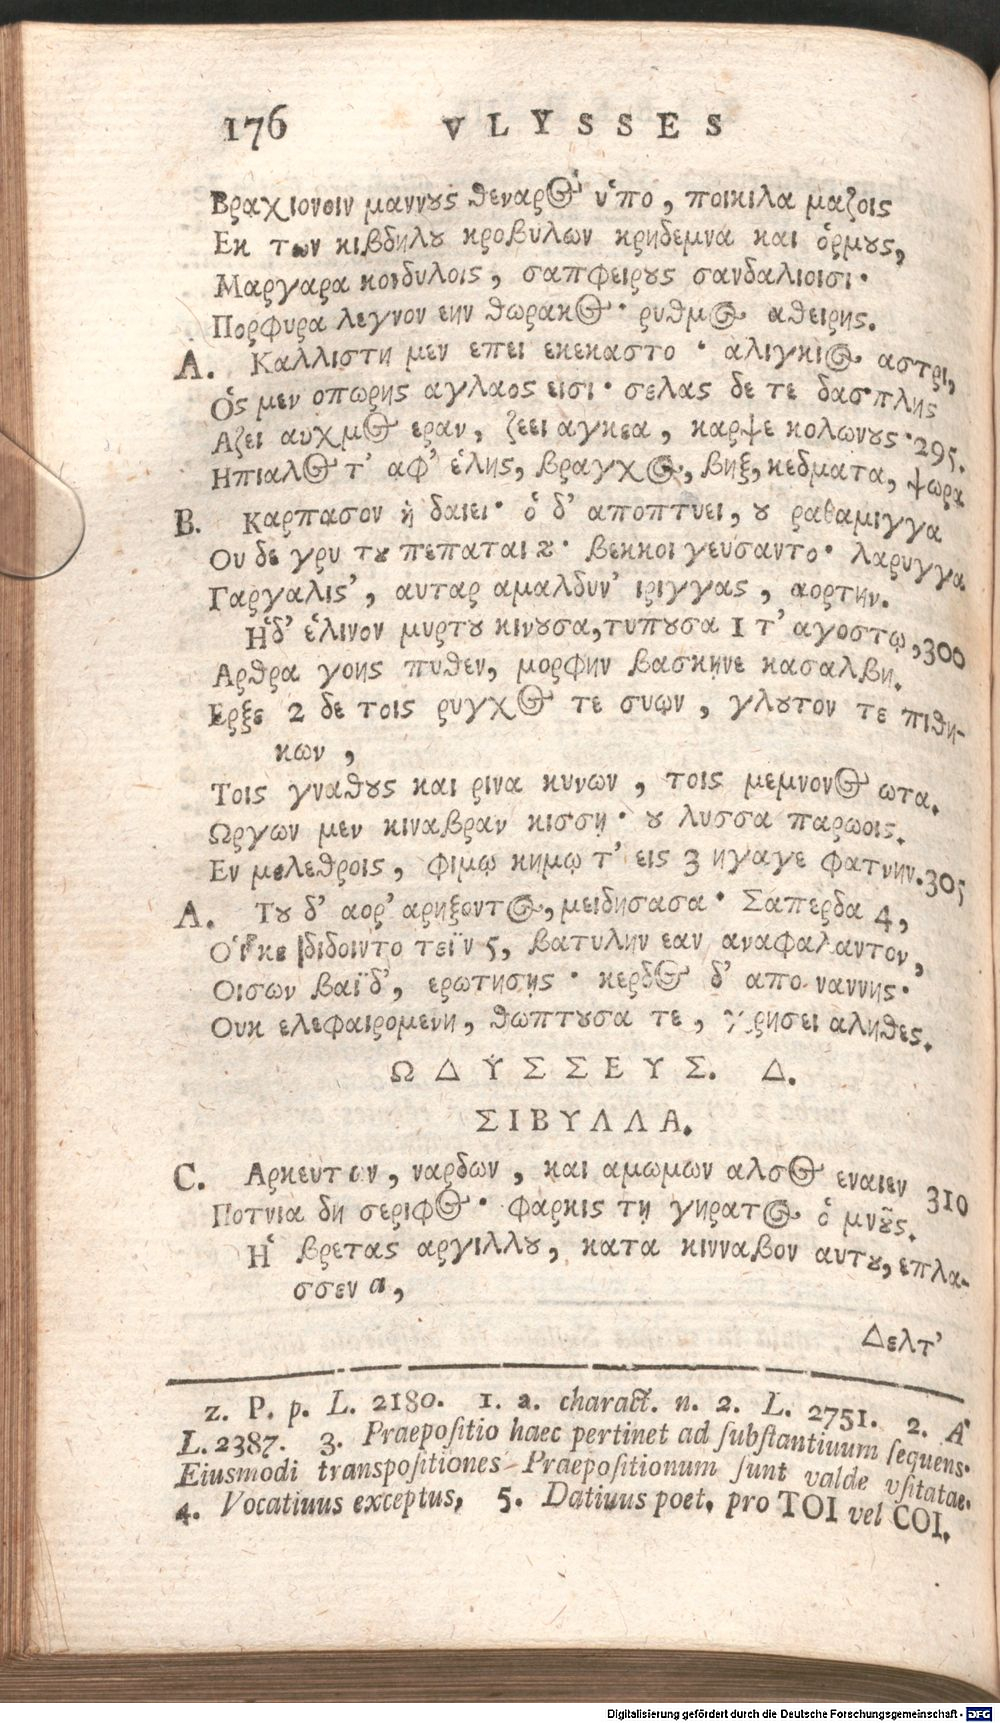 176 VLYSSES
Βραχιονσιν μαννους θεναρος ὑπο, ποικιλα μαζοις
Εκ των κιβδηλου κροβυλων κρηδεμνα και ὁρμους,
Μαργαρα κονδυλοις, σαπφειρους σανδαλιοισι·
Πορφυρα λεγνον εην θωρακος· ρυθμος αθειρης.
A. Καλλιστη μεν επει εκεκαστο· αλιγκιος αστρι,
Ὁς μεν οπωρης αγλαος εισι· σελας δε τε δασπλης
Αζει αυχμος εραν, ζεει αγκεα, καρψε κολωνους· 295.
Ηπιαλος τ' αφ' ἑλης, βραγχος, βηξ, κεδματα, ψωρα
B. Καρπασον ἡ δαιει· ὁ δ' αποπτυει, ου ραθαμιγγα
Ου δε γρυ του πεπαται z· βεκκοι γευσαντο· λαρυγγα
Γαργαλις', αυταρ αμαλδυν' ιριγγας, αορτην.
Ἡδ' ἑλινον μυρτου κινουσα, τυπουσα 1 τ' αγοστῳ, 300
Αρθρα γοης πυθεν, μορφην βασκῃνε κασαλβη.
Ερξε 2 δε τοις ρυγχος τε συων, γλουτον τε πιθη-
κων,
Τοις γναθους και ρινα κυνων, τοις μεμνονος ωτα.
Ωργων μεν κιναβραν κισσῃ· ου λυσσα παρωοις.
Εν μελεθροις, φιμῳ κημῳ τ' εις 3 ηγαγε φατνην. 305
A. Του δ' αορ' αρηξοντος, μειδησασα· Σαπερδα 4,
Οἱ κε διδοιντο τεϊν 5, βατυλην εαν αναφαλαντον,
Οισων βαϊδ', ερωτησῃς· κερδος δ' απο ναννης·
Ουκ ελεφαιρομενη, θωπτουσα τε, χρησει αληθες.
ΩΔΥΣΣΕΥΣ. Δ.
ΣΙΒΥΛΛΑ.
C. Αρκευτων, ναρδων, και αμωμων αλσος εναιεν 310
Ποτνια δη σεριφος· φαρκις τῃ γηρατος ὁ μνους.
Ἡ βρετας αργιλλου, κατα κινναβον αυτου, επλα-
σσεν a,
Δελτ'
z. P. p. L. 2180. 1. a. charact. n. 2. L. 2751. 2. A
L. 2387. 3. Praepositio haec pertinet ad substantiuum sequens.
Eiusmodi transpositiones Praepositionum sunt valde vsitatae.
4. Vocatiuus exceptus, 5. Datiuus poet. pro TOI vel COI.
Digitalisierung gefördert durch die Deutsche Forschungsgemeinschaft - DFG